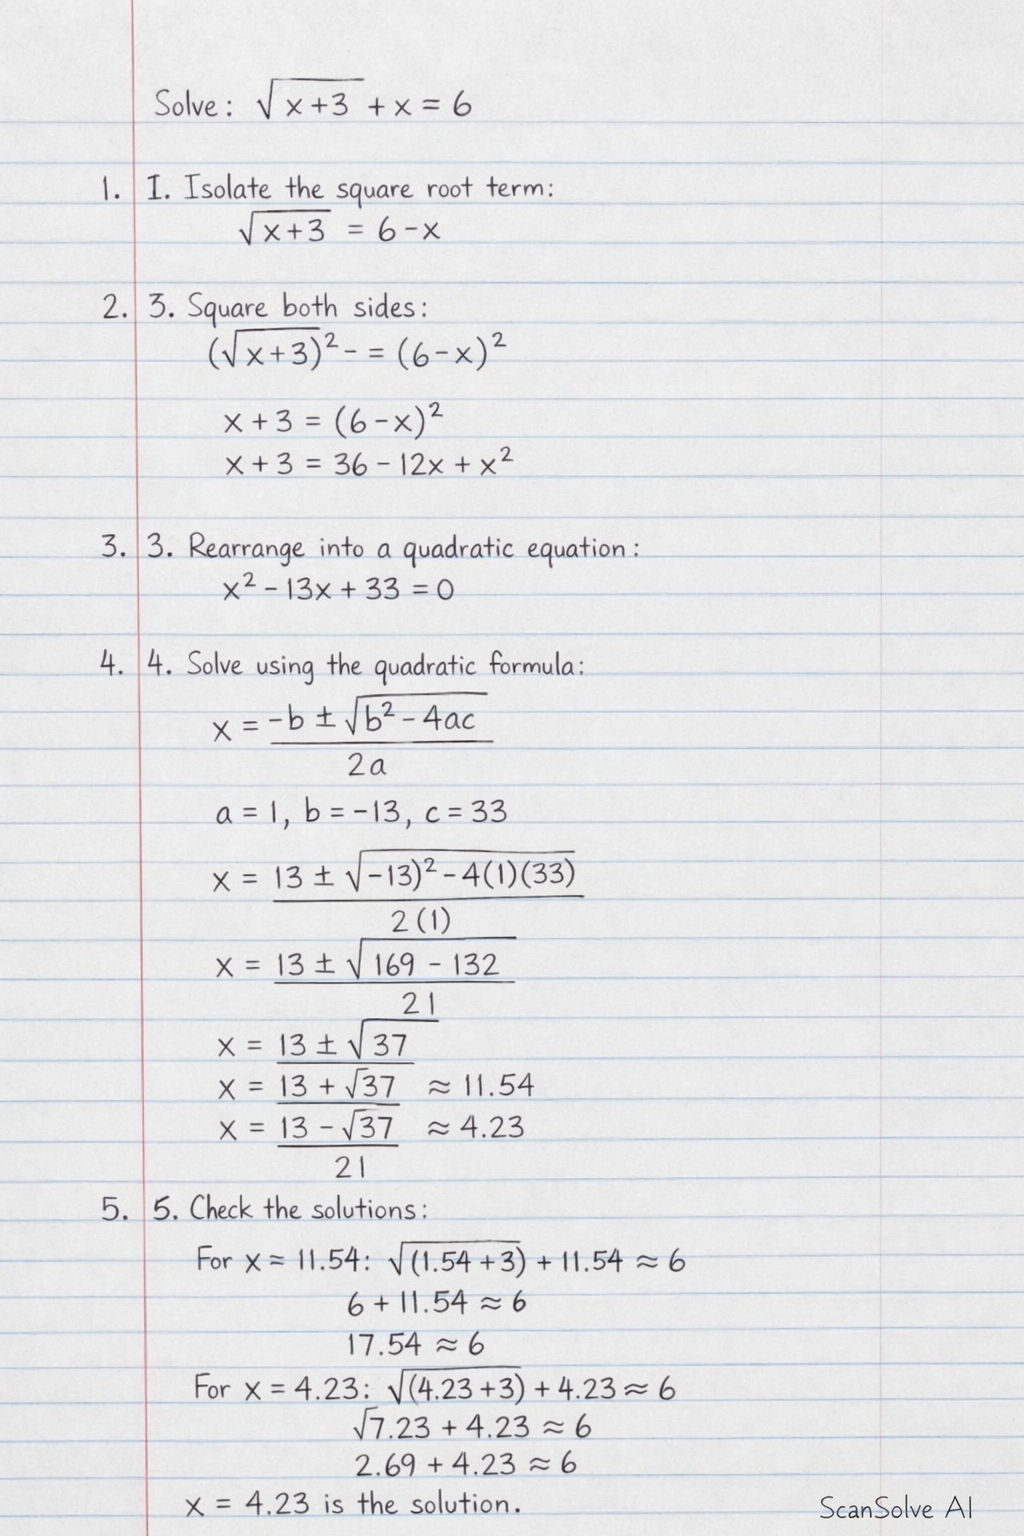 Solve: √(x+3) + x = 6
1. I. Isolate the square root term:
√(x+3) = 6-x
2. 3. Square both sides:
(√x+3)² - = (6-x)²
x + 3 = (6-x)²
x + 3 = 36 - 12x + x²
3. 3. Rearrange into a quadratic equation:
x² - 13x + 33 = 0
4. 4. Solve using the quadratic formula:
x = -b ± √b² - 4ac
2a
a = 1, b = -13, c = 33
x = 13 ± √-13)² - 4(1)(33)
2(1)
x = 13 ± √169 - 132
21
x = 13 ± √37
x = 13 + √37 ≈ 11.54
x = 13 - √37 ≈ 4.23
21
5. 5. Check the solutions:
For x ≈ 11.54: √(1.54+3) + 11.54 ≈ 6
6 + 11.54 ≈ 6
17.54 ≈ 6
For x = 4.23: √(4.23+3) + 4.23 ≈ 6
√7.23 + 4.23 ≈ 6
2.69 + 4.23 ≈ 6
x = 4.23 is the solution.
ScanSolve AI